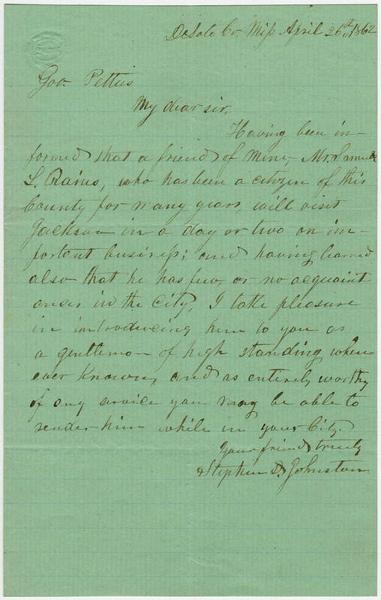 DeSoto Co Miss April 26th 1862
Gov Pettus
My dear sir,
Having been in-
formed that a friend of mine, Mr. Samuel
L. Rains, who has been a citizen of this
County for many years, will visit
Jackson in a day or two on im-
portant business; and having learned
also that he has few or no acquaint
ances in the City, I take pleasure
in introducing him to you as
a gentleman of high standing, when
ever known, and as entirely worthy
of any service you may be able to
render him while in your City.
Your friend truly
Stephen D. Johnston